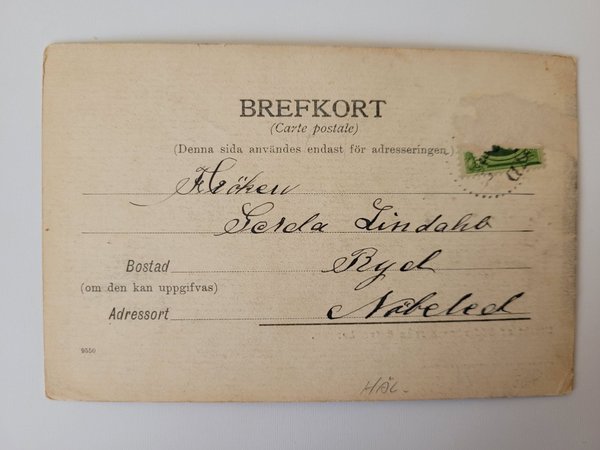 BREFKORT
(Carte postale)
(Denna sida användes endast för adresseringen)
Fröken
Gerda Lindahl
Bostad Ryd
(om den kan uppgifvas)
Adressort Nöbeled
9550
HÄL-